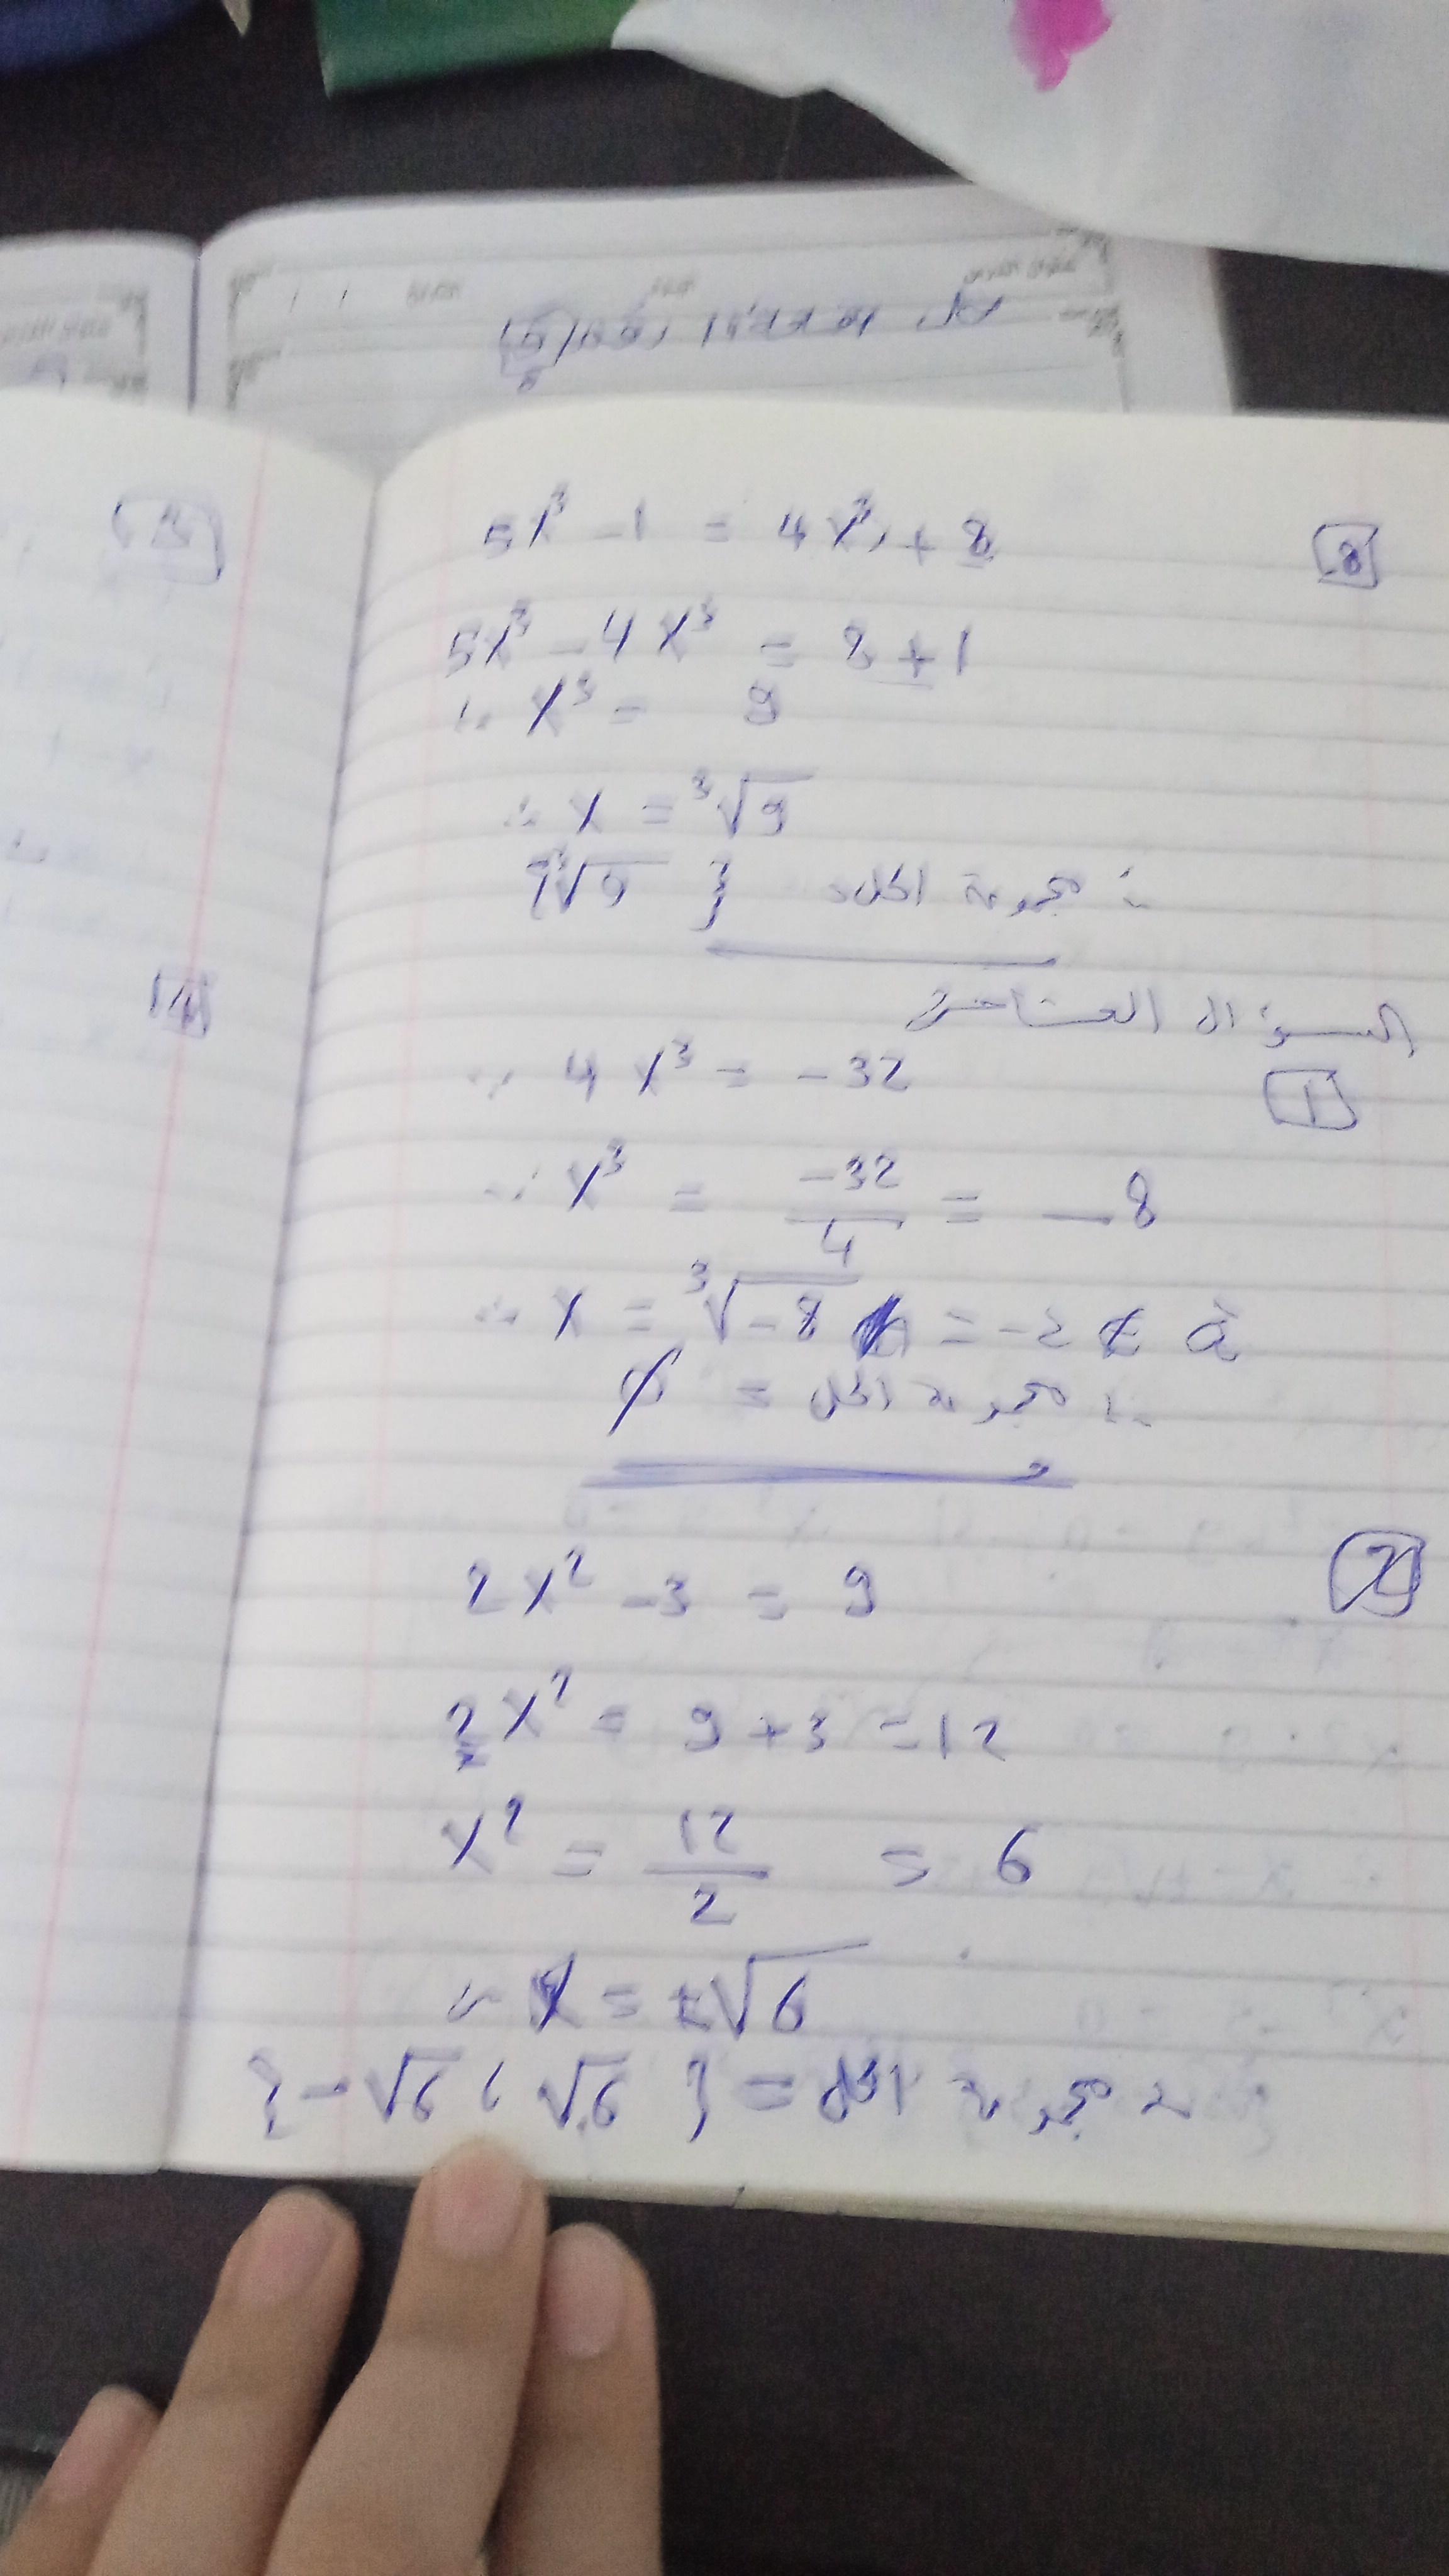 5x³ - 1 = 4x³ + 8
8
5x³ - 4x³ = 8 + 1
∴ x³ = 9
∴ x = ³√9
∴ مجموعة الحل = {³√9}
السؤال العاشر
1
∵ 4x³ = -32
∴ x³ = -32/4 = -8
∴ x = ³√-8 = -2 ∉
∴ مجموعة الحل = ∅
2
2x² - 3 = 9
2x² = 9 + 3 = 12
x² = 12/2 = 6
∴ x = ±√6
∴ مجموعة الحل = {√6 ، -√6}
14